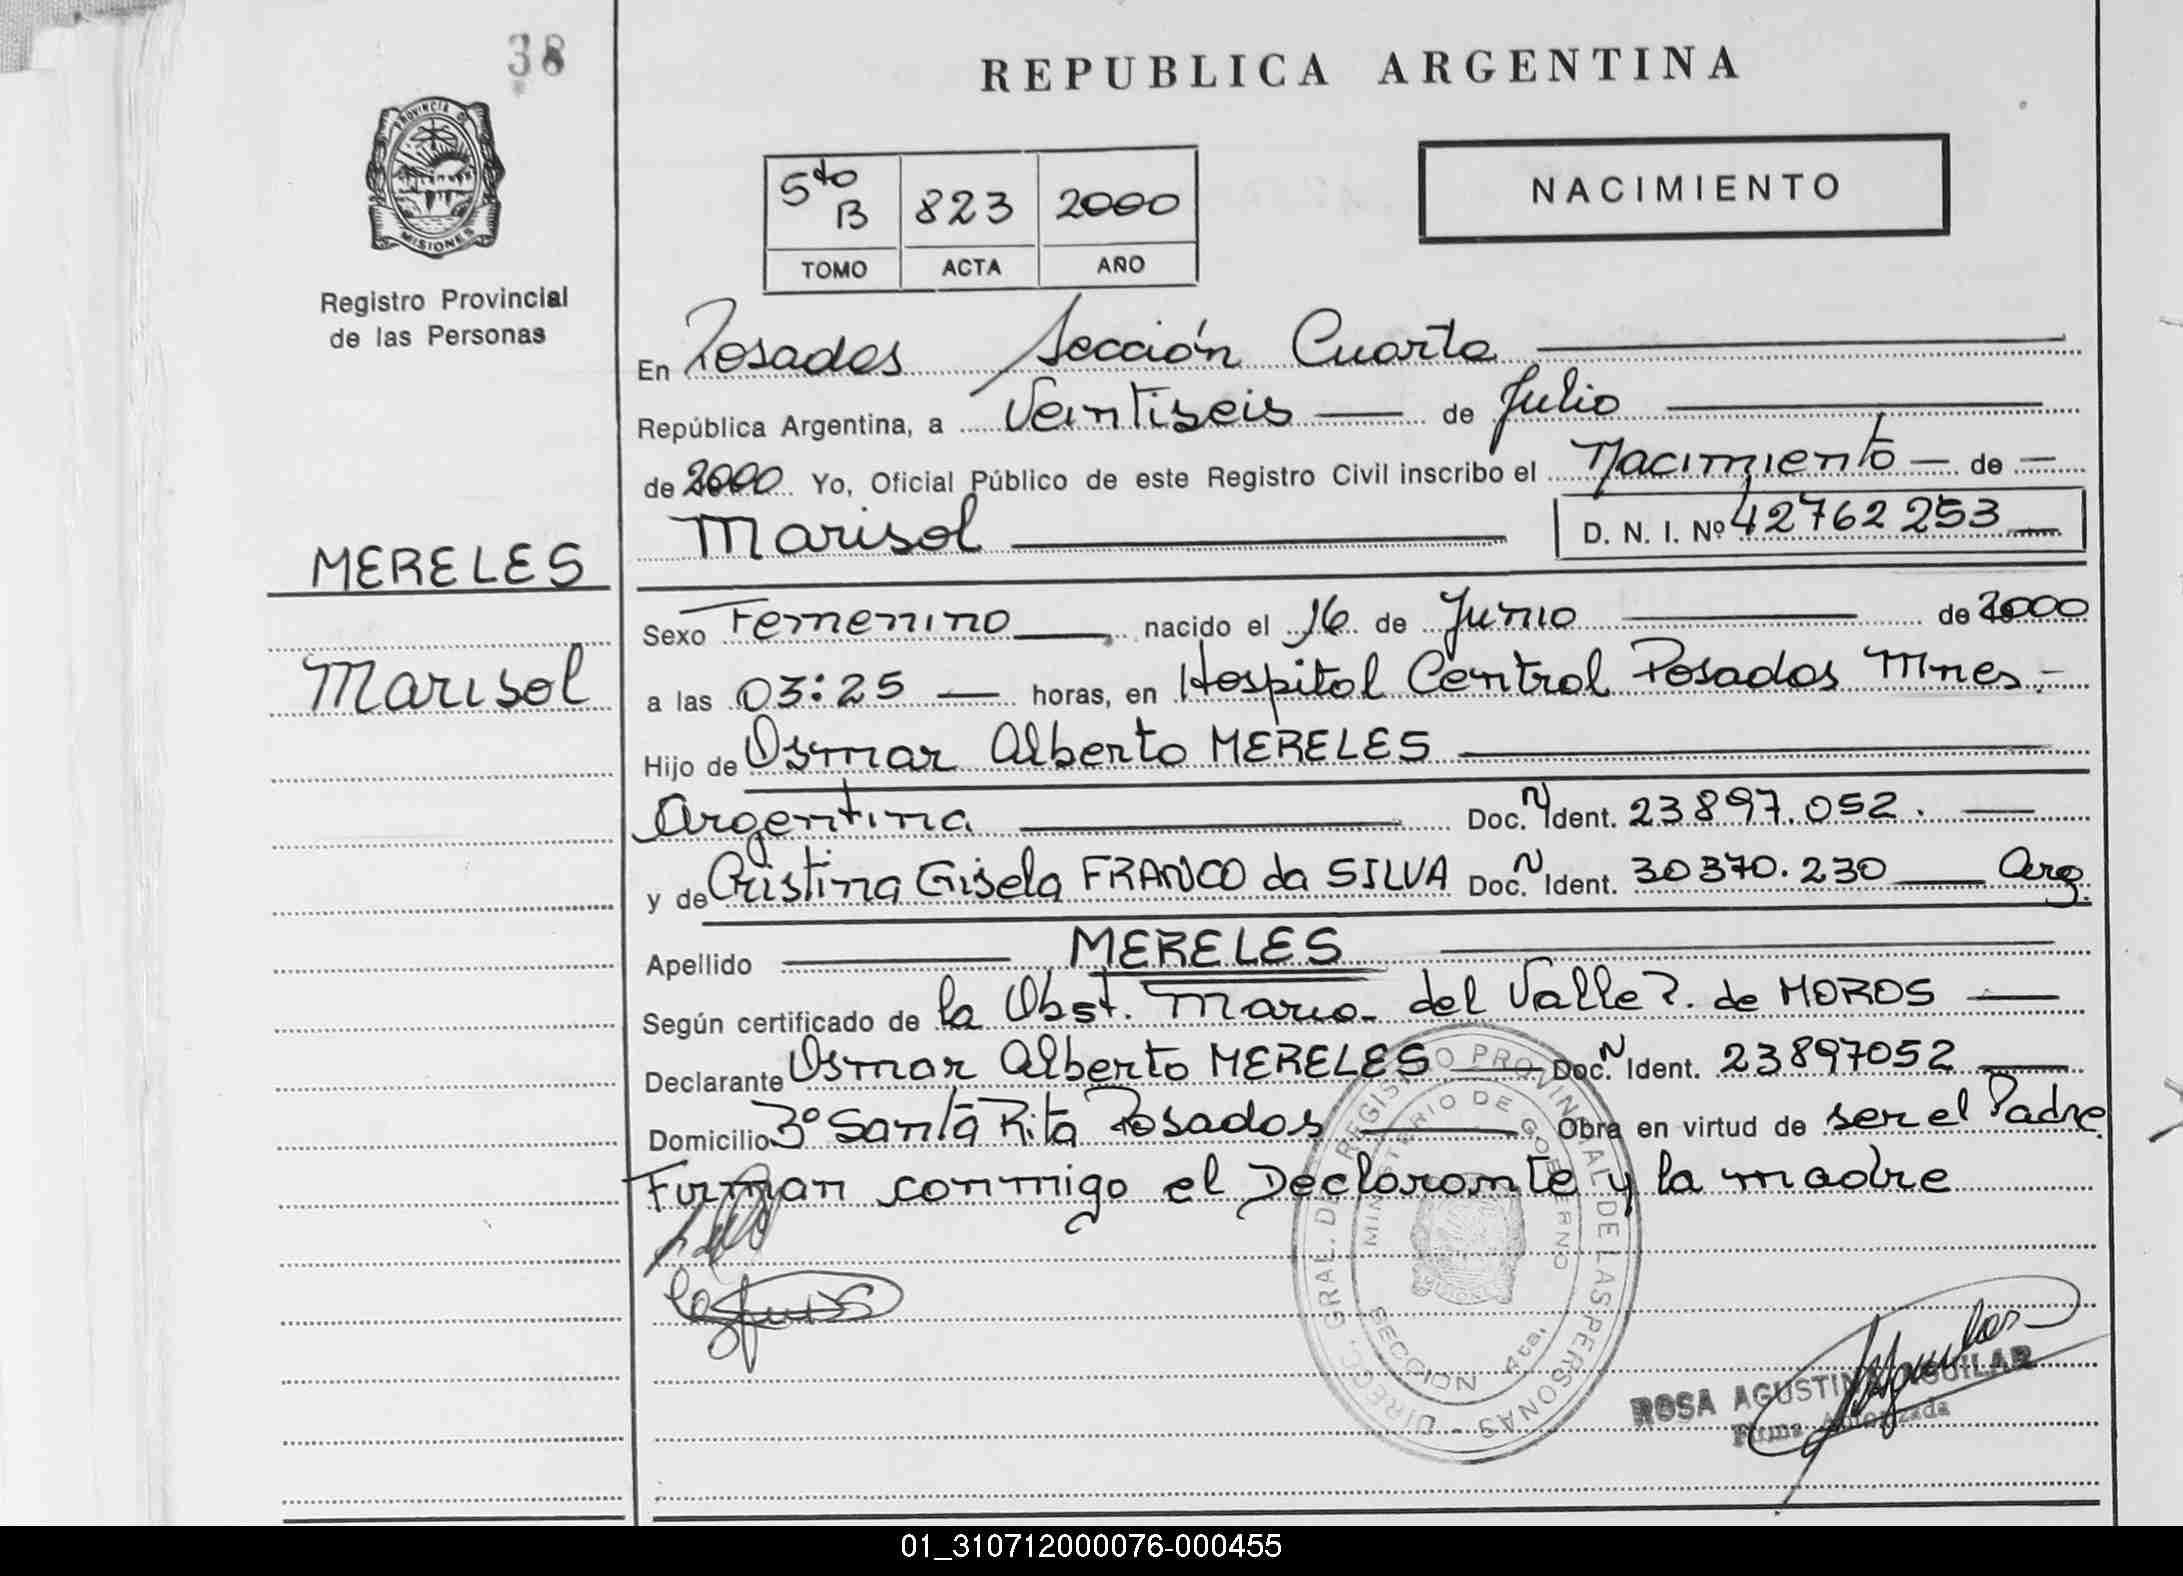 38
REPUBLICA ARGENTINA
PROVINCIA DE
MISIONES
Registro Provincial
de las Personas
5to B 823 2000
TOMO ACTA AÑO
NACIMIENTO
En Posadas Sección Cuarta
República Argentina, a Veintiseis de Julio
de 2000 Yo, Oficial Público de este Registro Civil inscribo el Nacimiento de
Marisol D. N. I. Nº 42762253
MERELES
Marisol
Sexo Femenino nacido el 16 de Junio de 2000
a las 03:25 horas, en Hospital Central Posadas Mnes.-
Hijo de Osmar Alberto MERELES
Argentina Doc. N Ident. 23897.052.
y de Cristina Gisela FRANCO da SILVA Doc. N Ident. 30370.230 Arg.
Apellido MERELES
Según certificado de la Obst. Maria del Valle R. de MOROS
Declarante Osmar Alberto MERELES Doc. N Ident. 23897052
Domicilio Bº Santa Rita Posadas Obra en virtud de ser el Padre.
Firman conmigo el Declarante y la madre
DIRECC. GRAL. DE REGISTRO PROVINCIAL DE LAS PERSONAS
MINISTERIO DE GOBIERNO
SECCION 4ta.
ROSA AGUSTINA AGUILAR
Firma Autorizada
01_310712000076-000455